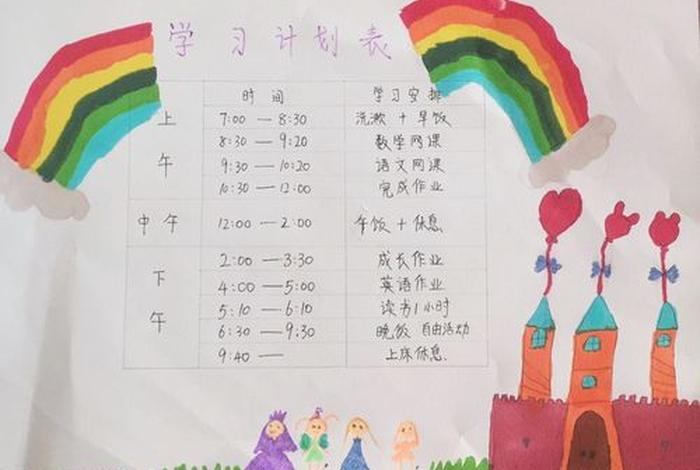 学习计划表
时间 学习安排
上午
7:00 — 8:30 洗漱 + 早饭
8:30 — 9:20 数学网课
9:30 — 10:20 语文网课
10:30 — 12:00 完成作业
中午 12:00 — 2:00 午饭 + 休息
下午
2:00 — 3:30 成长作业
4:00 — 5:00 英语作业
5:10 — 6:10 读书1小时
6:30 — 9:30 晚饭 自由活动
9:40 — 上床休息